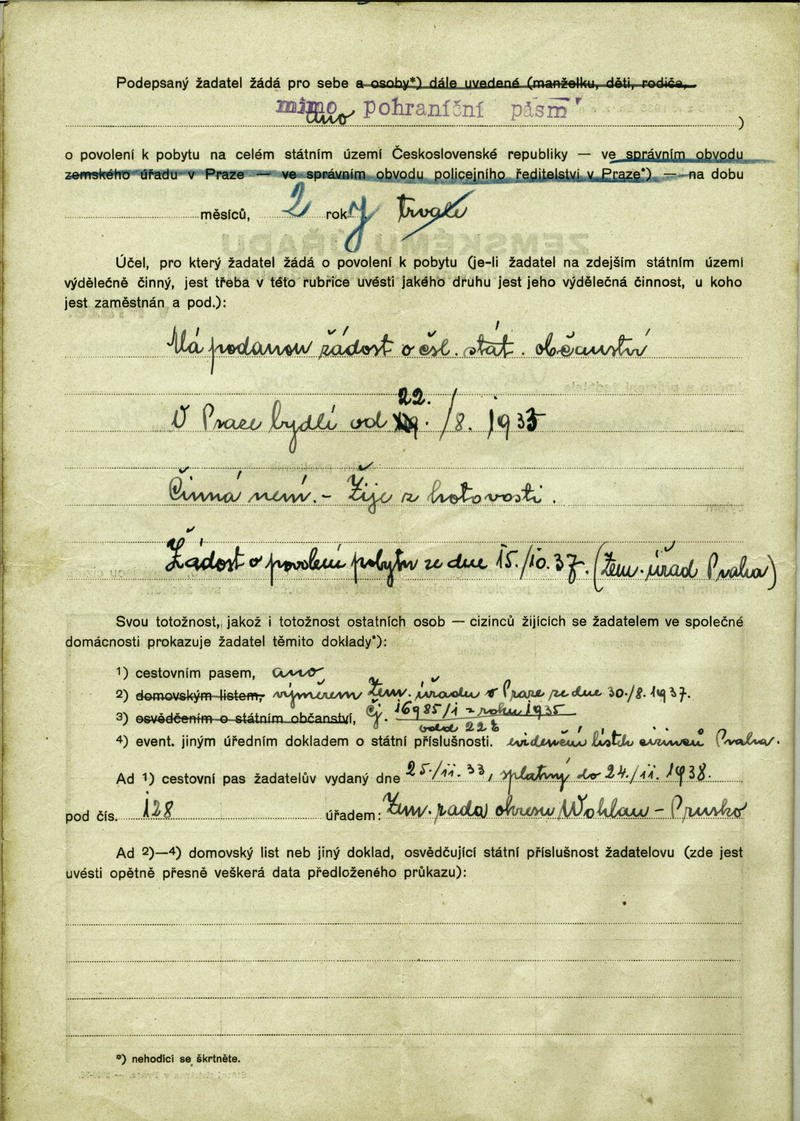 Podepsaný žadatel žádá pro sebe a osoby*) dále uvedené (manželku, děti, rodiče,
mimo pohraniční pásm
ano )
o povolení k pobytu na celém státním území Československé republiky — ve správním obvodu
zemského úřadu v Praze — ve správním obvodu policejního ředitelství v Praze*) — na dobu
měsíců, 2 roky trvale
Účel, pro který žadatel žádá o povolení k pobytu (je-li žadatel na zdejším státním území
výdělečně činný, jest třeba v této rubrice uvésti jakého druhu jest jeho výdělečná činnost, u koho
jest zaměstnán a pod.):
Má podanou žádost o čsl. stát. občanství
V Praze bydlí od 22./8. 1935
Činná není. – Žije z hotovosti.
Žádost o povolení pobytu ze dne 15./10. 37. (Zem. úřad Praha)
Svou totožnost, jakož i totožnost ostatních osob — cizinců žijících se žadatelem ve společné
domácnosti prokazuje žadatel těmito doklady*):
1) cestovním pasem, ano
2) domovským listem, výměrem Zem. úřadu v Praze ze dne 30./8. 1937.
3) osvědčením o státním občanství, Čj. 16985/i z roku 1935
odd 22b
4) event. jiným úředním dokladem o státní příslušnosti. Praha.
Ad 1) cestovní pas žadatelův vydaný dne 25./11. 33, splatný do 24./11. 1938.
pod čís. 128 úřadem: Zem. rada okresu Wohlau – Prusko
Ad 2)—4) domovský list neb jiný doklad, osvědčující státní příslušnost žadatelovu (zde jest
uvésti opětně přesně veškerá data předloženého průkazu):
*) nehodící se škrtněte.